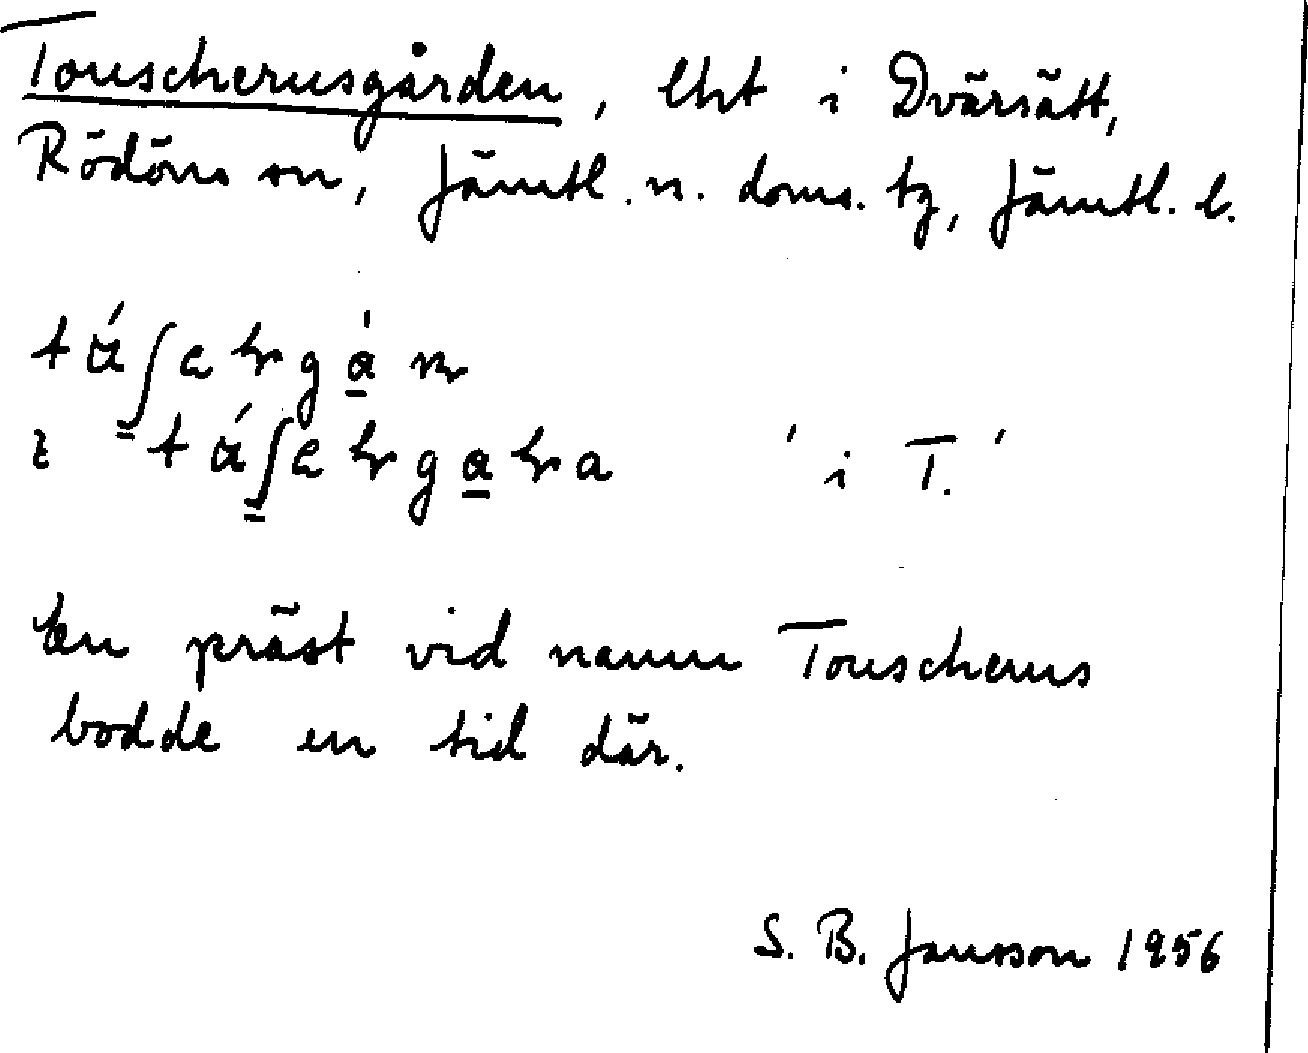 Touscherusgården, lht i Dvärsätt,
Rödöns sn, Jämtl. n. doms. tg, Jämtl. l.
i 'i T.'
En präst vid namn Touscherus
bodde en tid där.
S. B. Jansson 1956